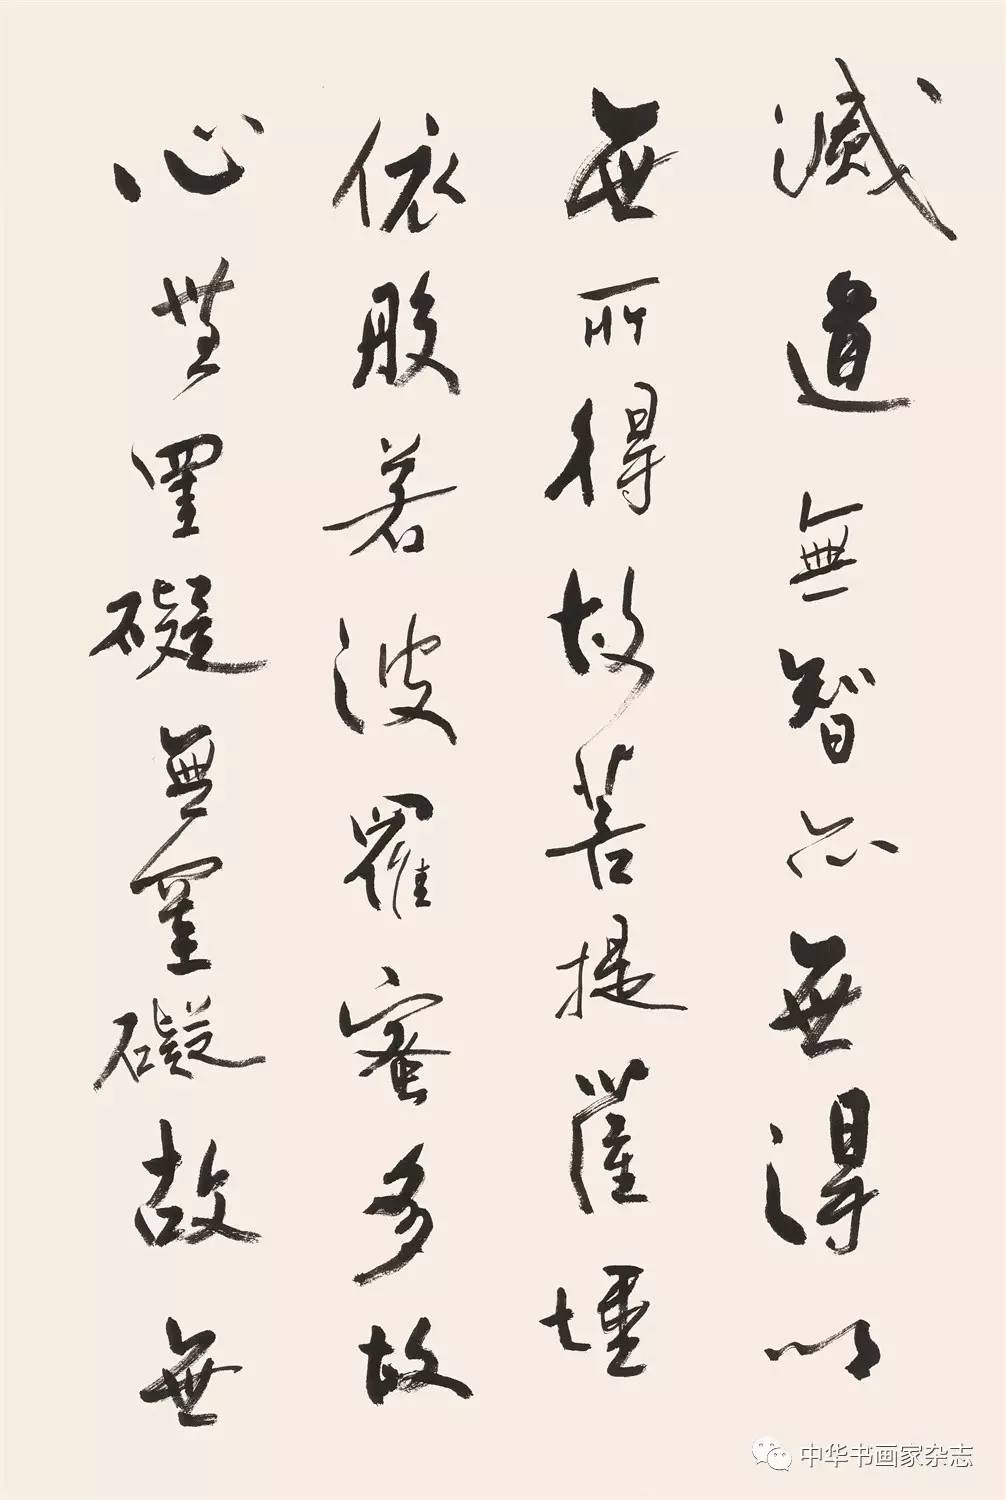 滅道無智亦無得以
無所得故菩提薩埵
依般若波羅蜜多故
心無罣礙無罣礙故無
中华书画家杂志